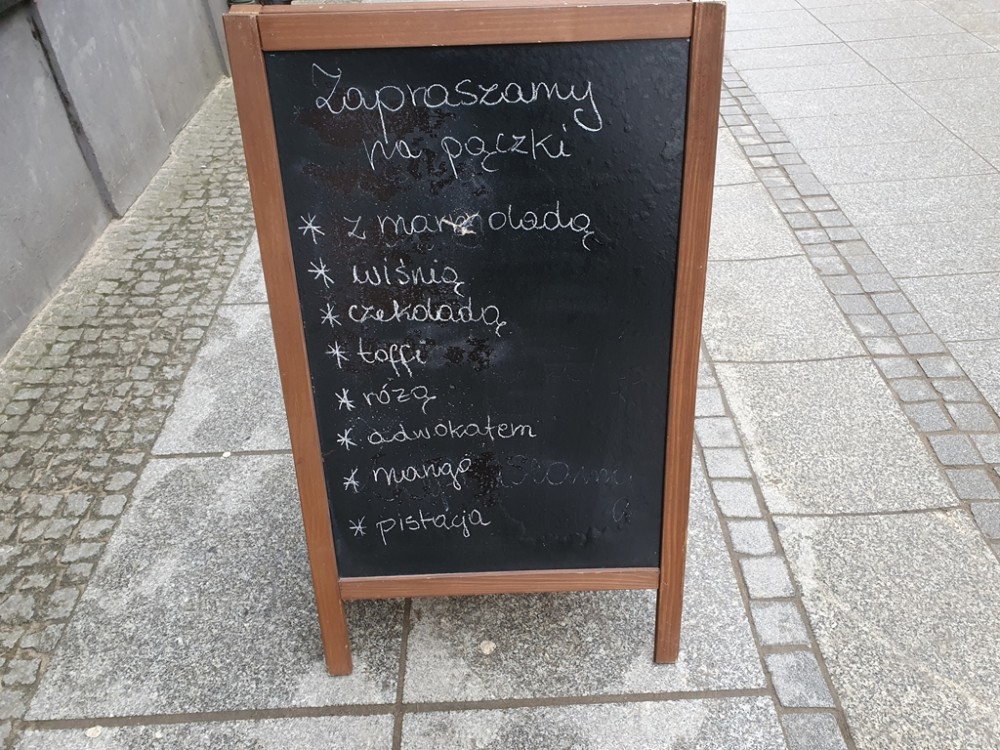 Zapraszamy
na pączki
* z marmoladą
* wiśnią
* czekoladą
* toffi
* różą
* adwokatem
* mango
* pistacja